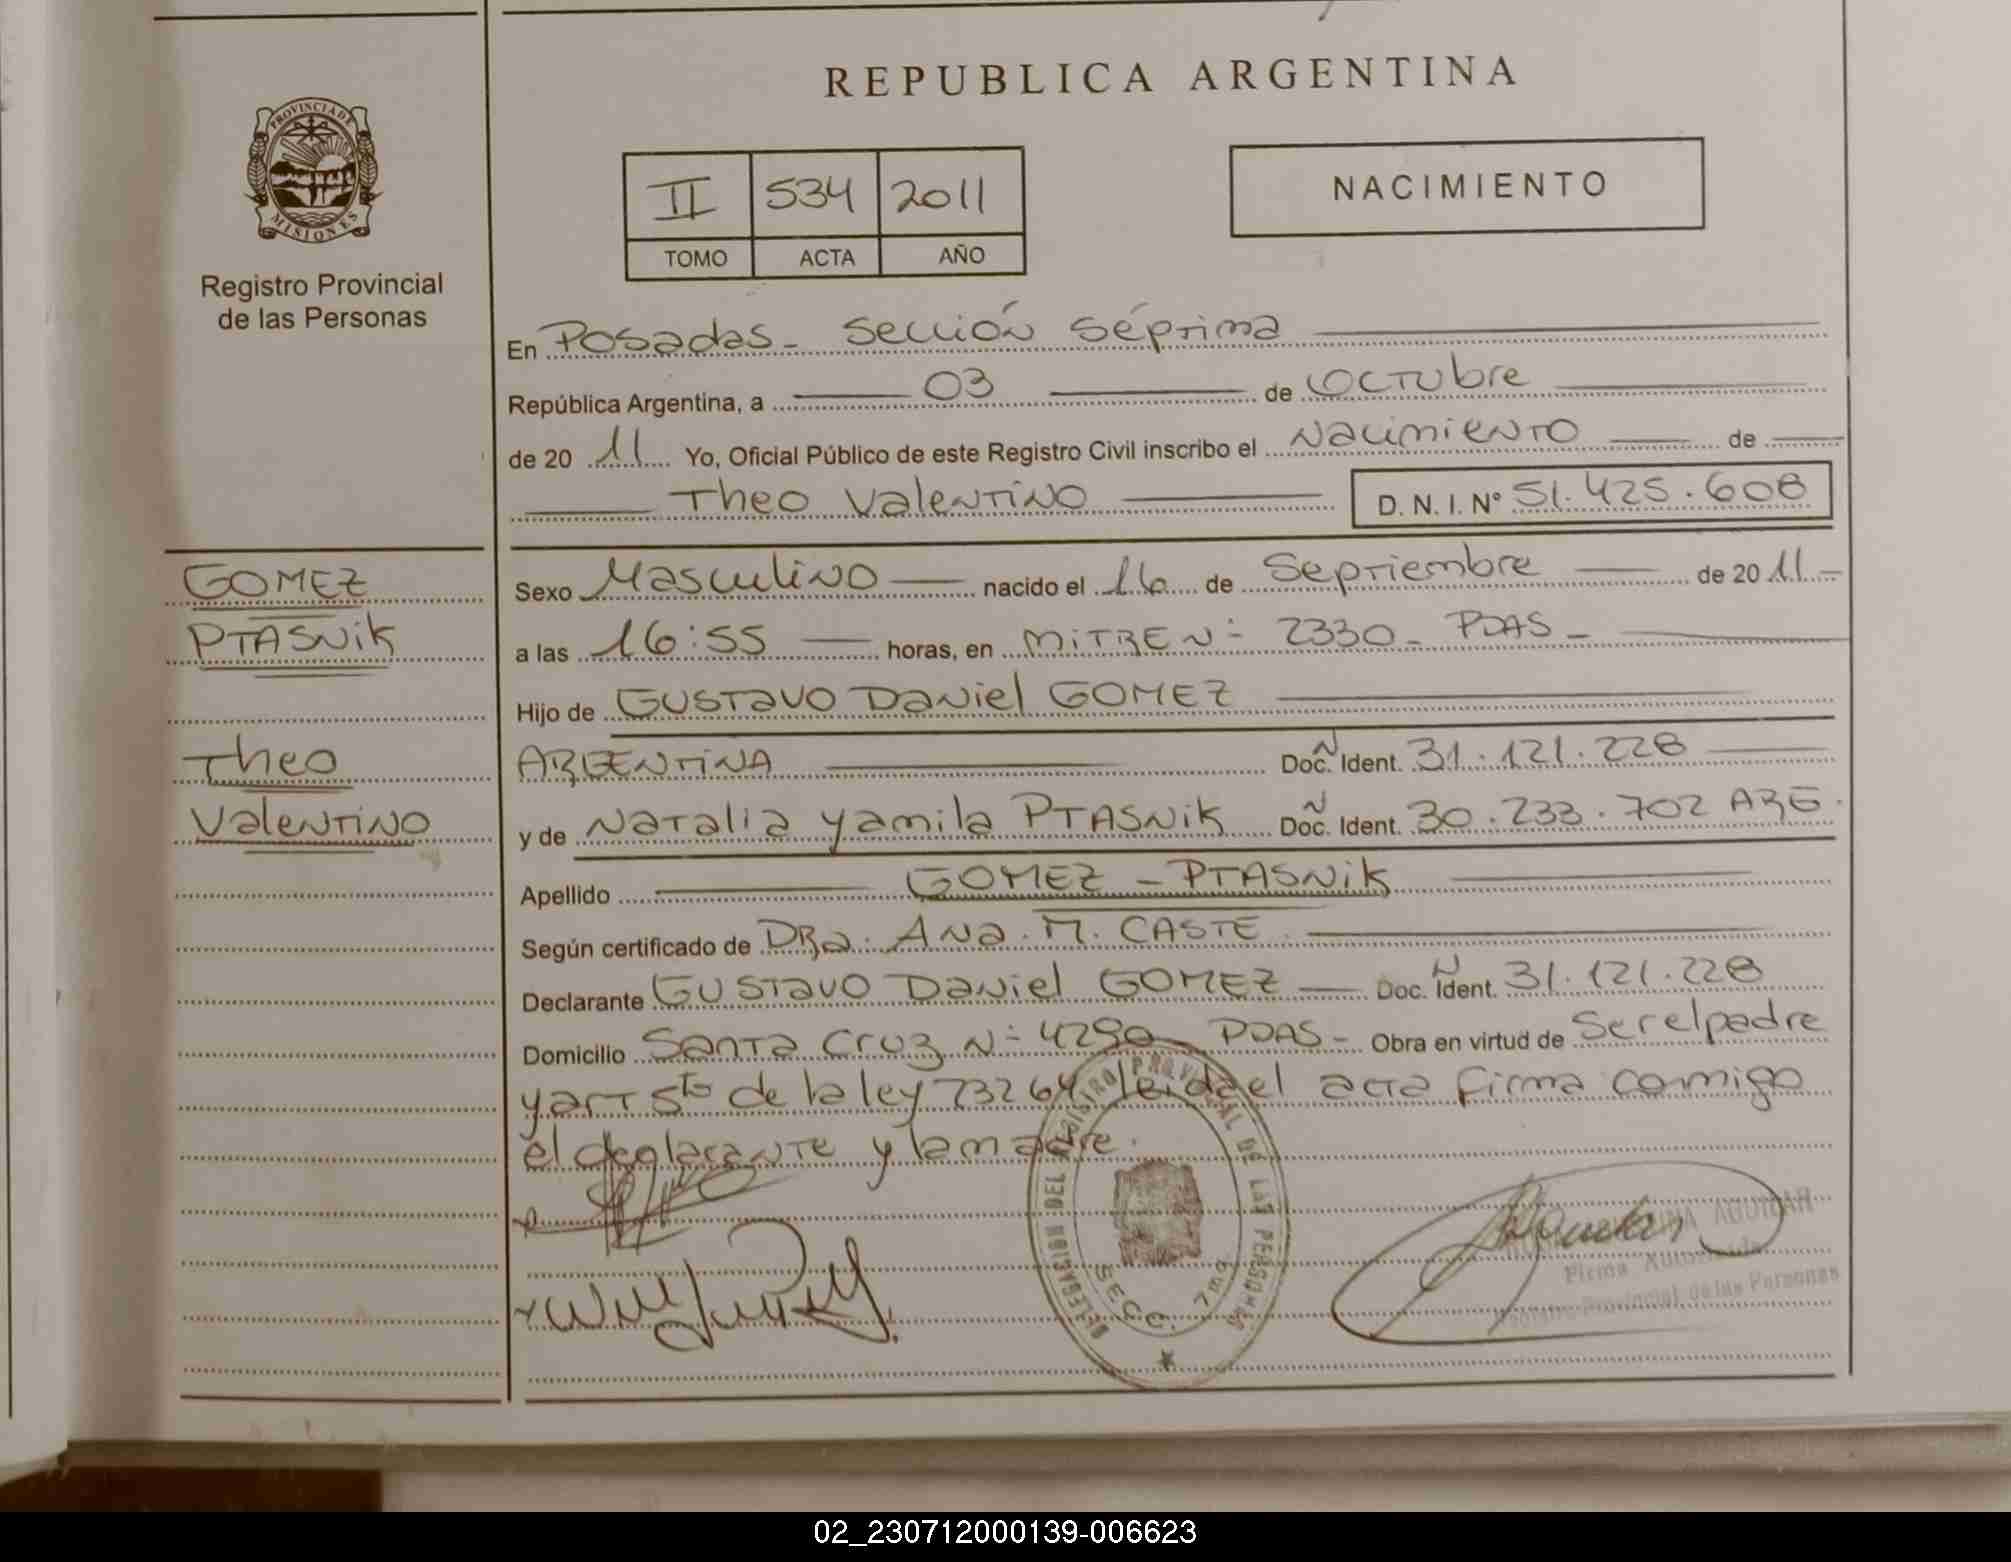 REPUBLICA ARGENTINA
PROVINCIA DE MISIONES
Registro Provincial
de las Personas
II 534 2011
TOMO ACTA AÑO
NACIMIENTO
En Posadas - Sección Séptima
República Argentina, a 03 de Octubre
de 20 11 Yo, Oficial Público de este Registro Civil inscribo el Nacimiento de
Theo Valentino D. N. I. N° 51.425.608
GOMEZ
PTASNik
Theo
Valentino
Sexo Masculino nacido el 16 de Septiembre de 20 11 -
a las 16:55 horas, en MiTRE N- 2330 - PDAS -
Hijo de GUSTAVO Daniel GOMEZ
ARGENTINA Doc. Ñ Ident. 31.121.228
y de Natalia yamila PTASNik Doc. Ñ Ident. 30.233.702 ARG.
Apellido GOMEZ - PTASNik
Según certificado de DRa. Ana. M. CASTE
Declarante GUSTAVO Daniel GOMEZ Doc. Ñ Ident. 31.121.228
Domicilio Santa Cruz N- 4290 PDAS - Obra en virtud de ser el padre
y art 5to de la ley 23264 leida el acta firma conmigo
el declarante y la madre.
DELEGACION DEL REGISTRO PROVINCIAL DE LAS PERSONAS
SECC. 7ma
AGUILAR
Firma Autorizada
Registro Provincial de las Personas
02_230712000139-006623